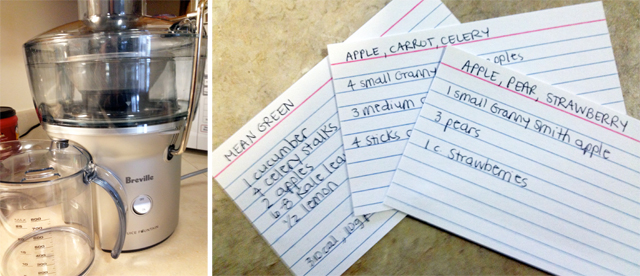 Breville
MEAN GREEN
1 cucumber
4 celery stalks
2 apples
6-8 kale lea
1/2 lemon
APPLE, CARROT, CELERY
4 small Granny apples
3 medium
4 sticks
APPLE, PEAR, STRAWBERRY
1 small Granny Smith apple
3 pears
1 c. Strawberries